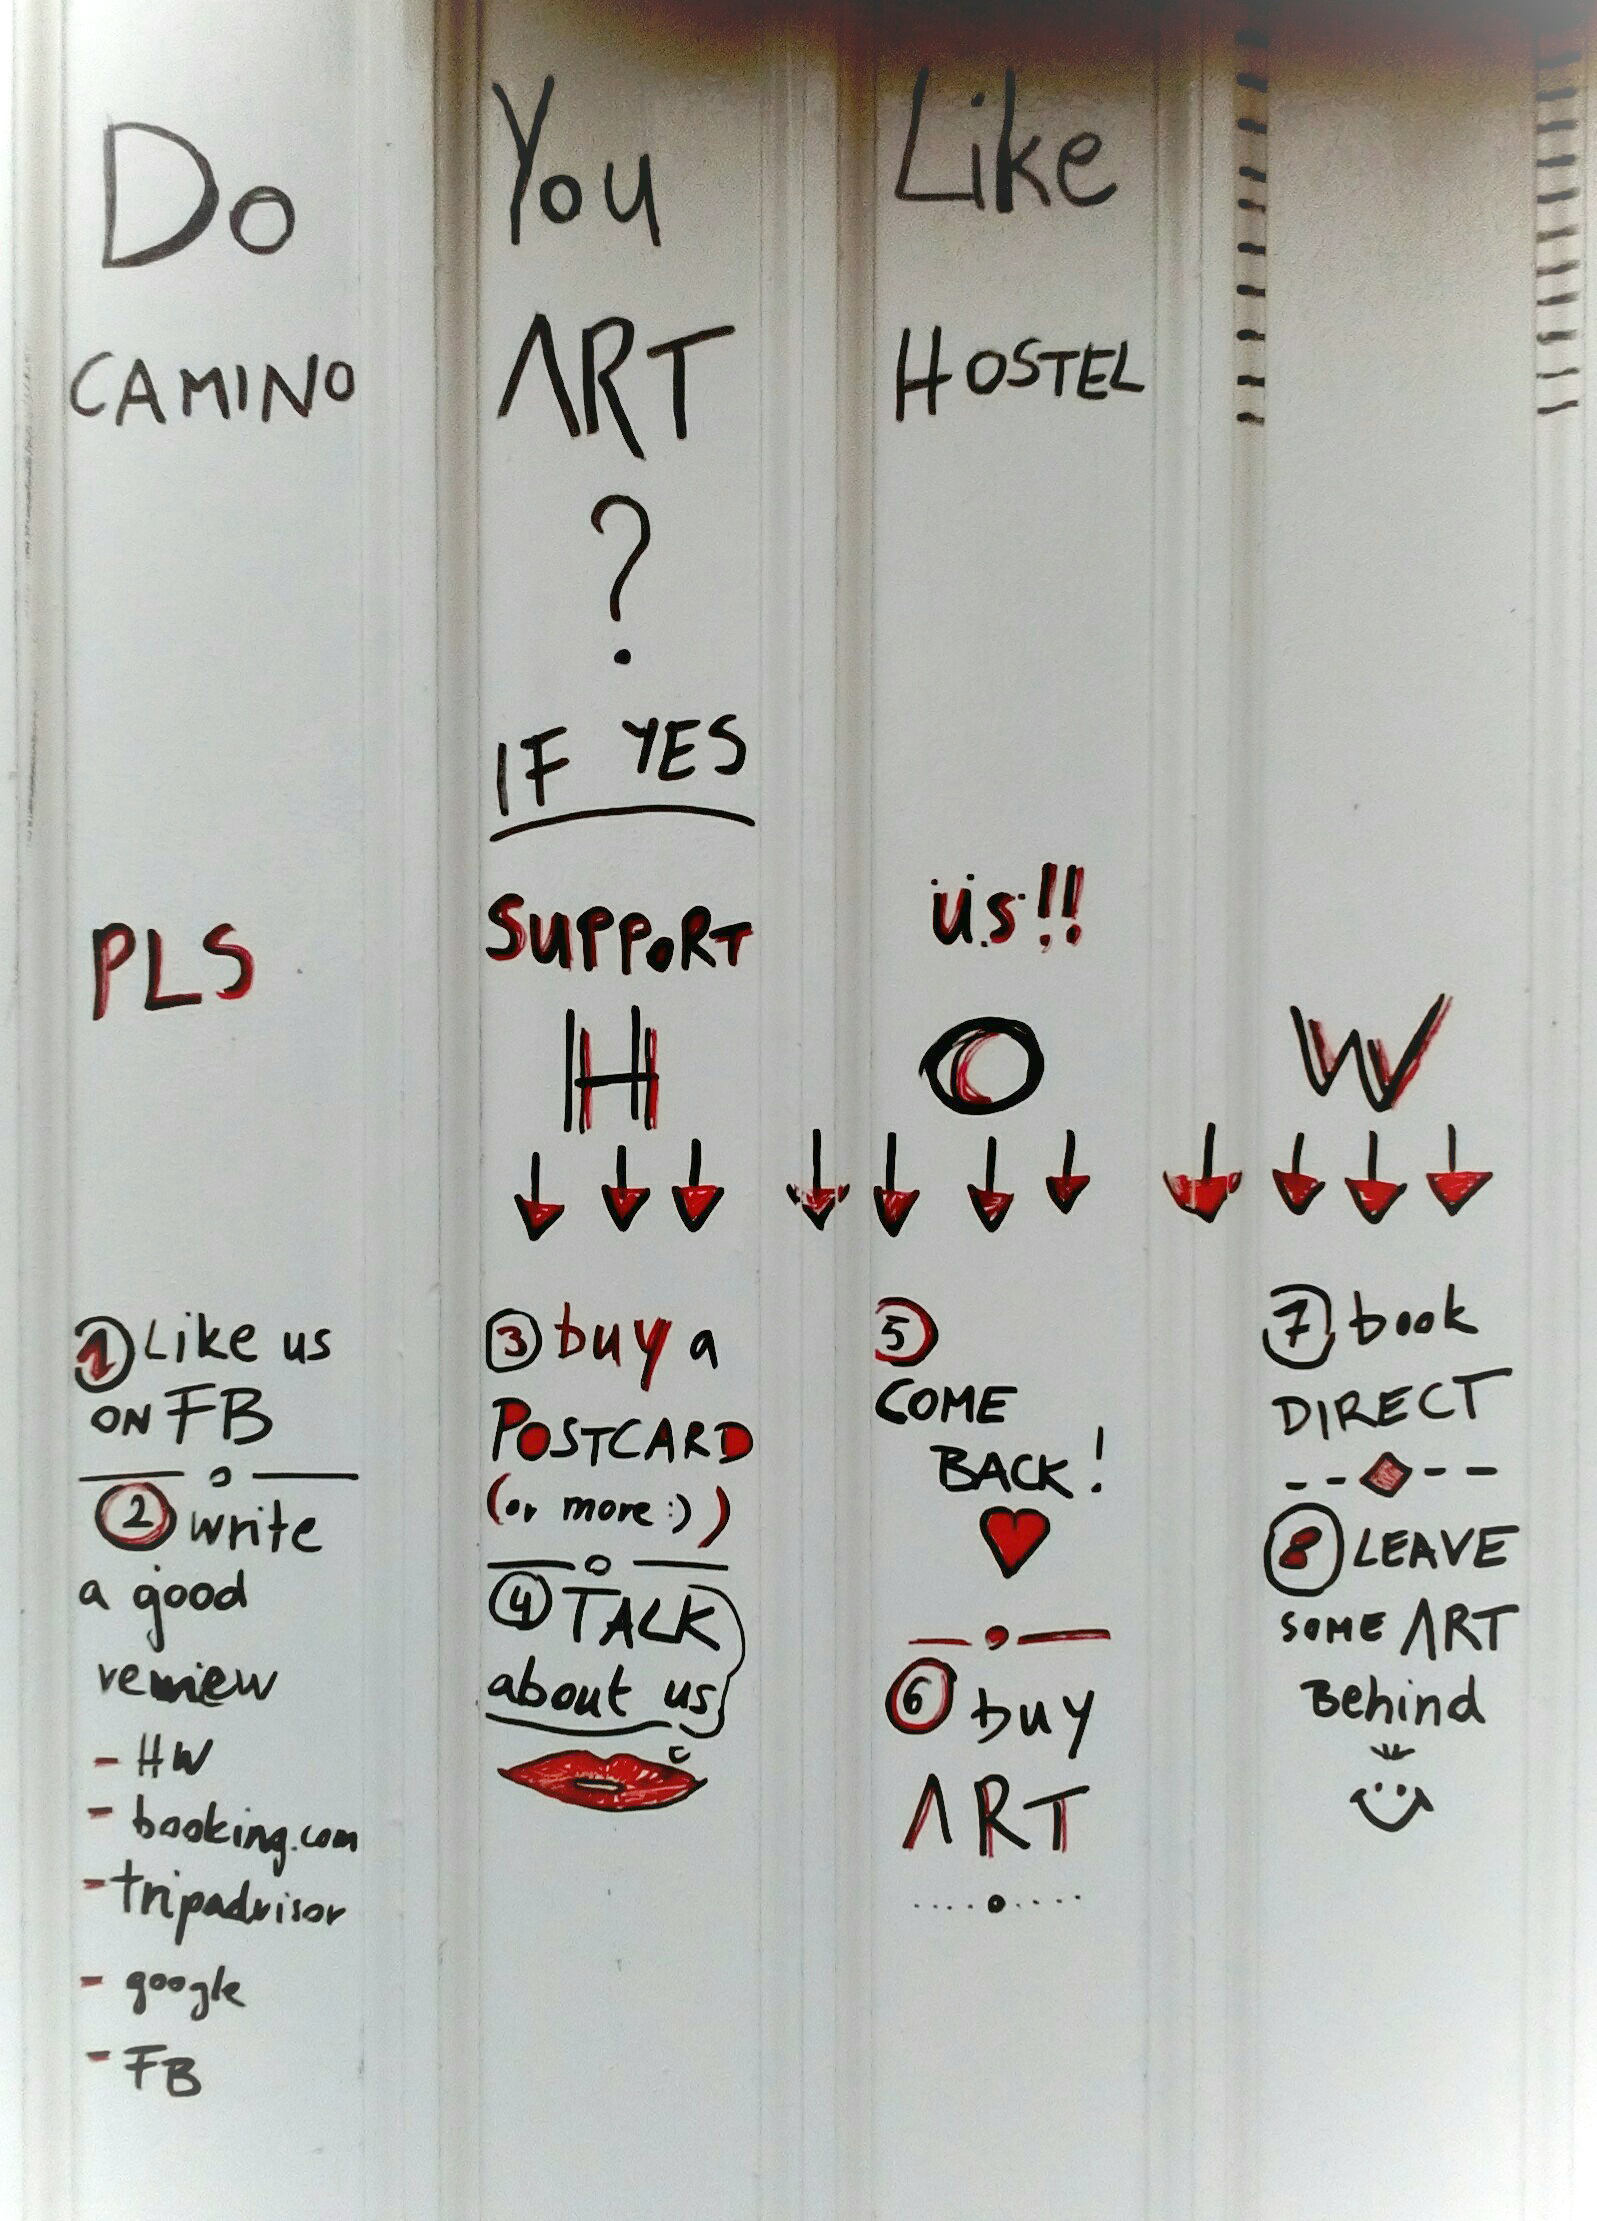 Do You Like
CAMINO ART HOSTEL
?
IF YES
PLS SUPPORT us!!
HOW
1 Like us
ON FB
2 write
a good
review
- HW
- booking.com
- tripadvisor
- google
- FB
3 buy a
POSTCARD
(or more :))
4 TALK
about us
5
COME
BACK!
6 buy
ART
7 book
DIRECT
8 LEAVE
SOME ART
Behind